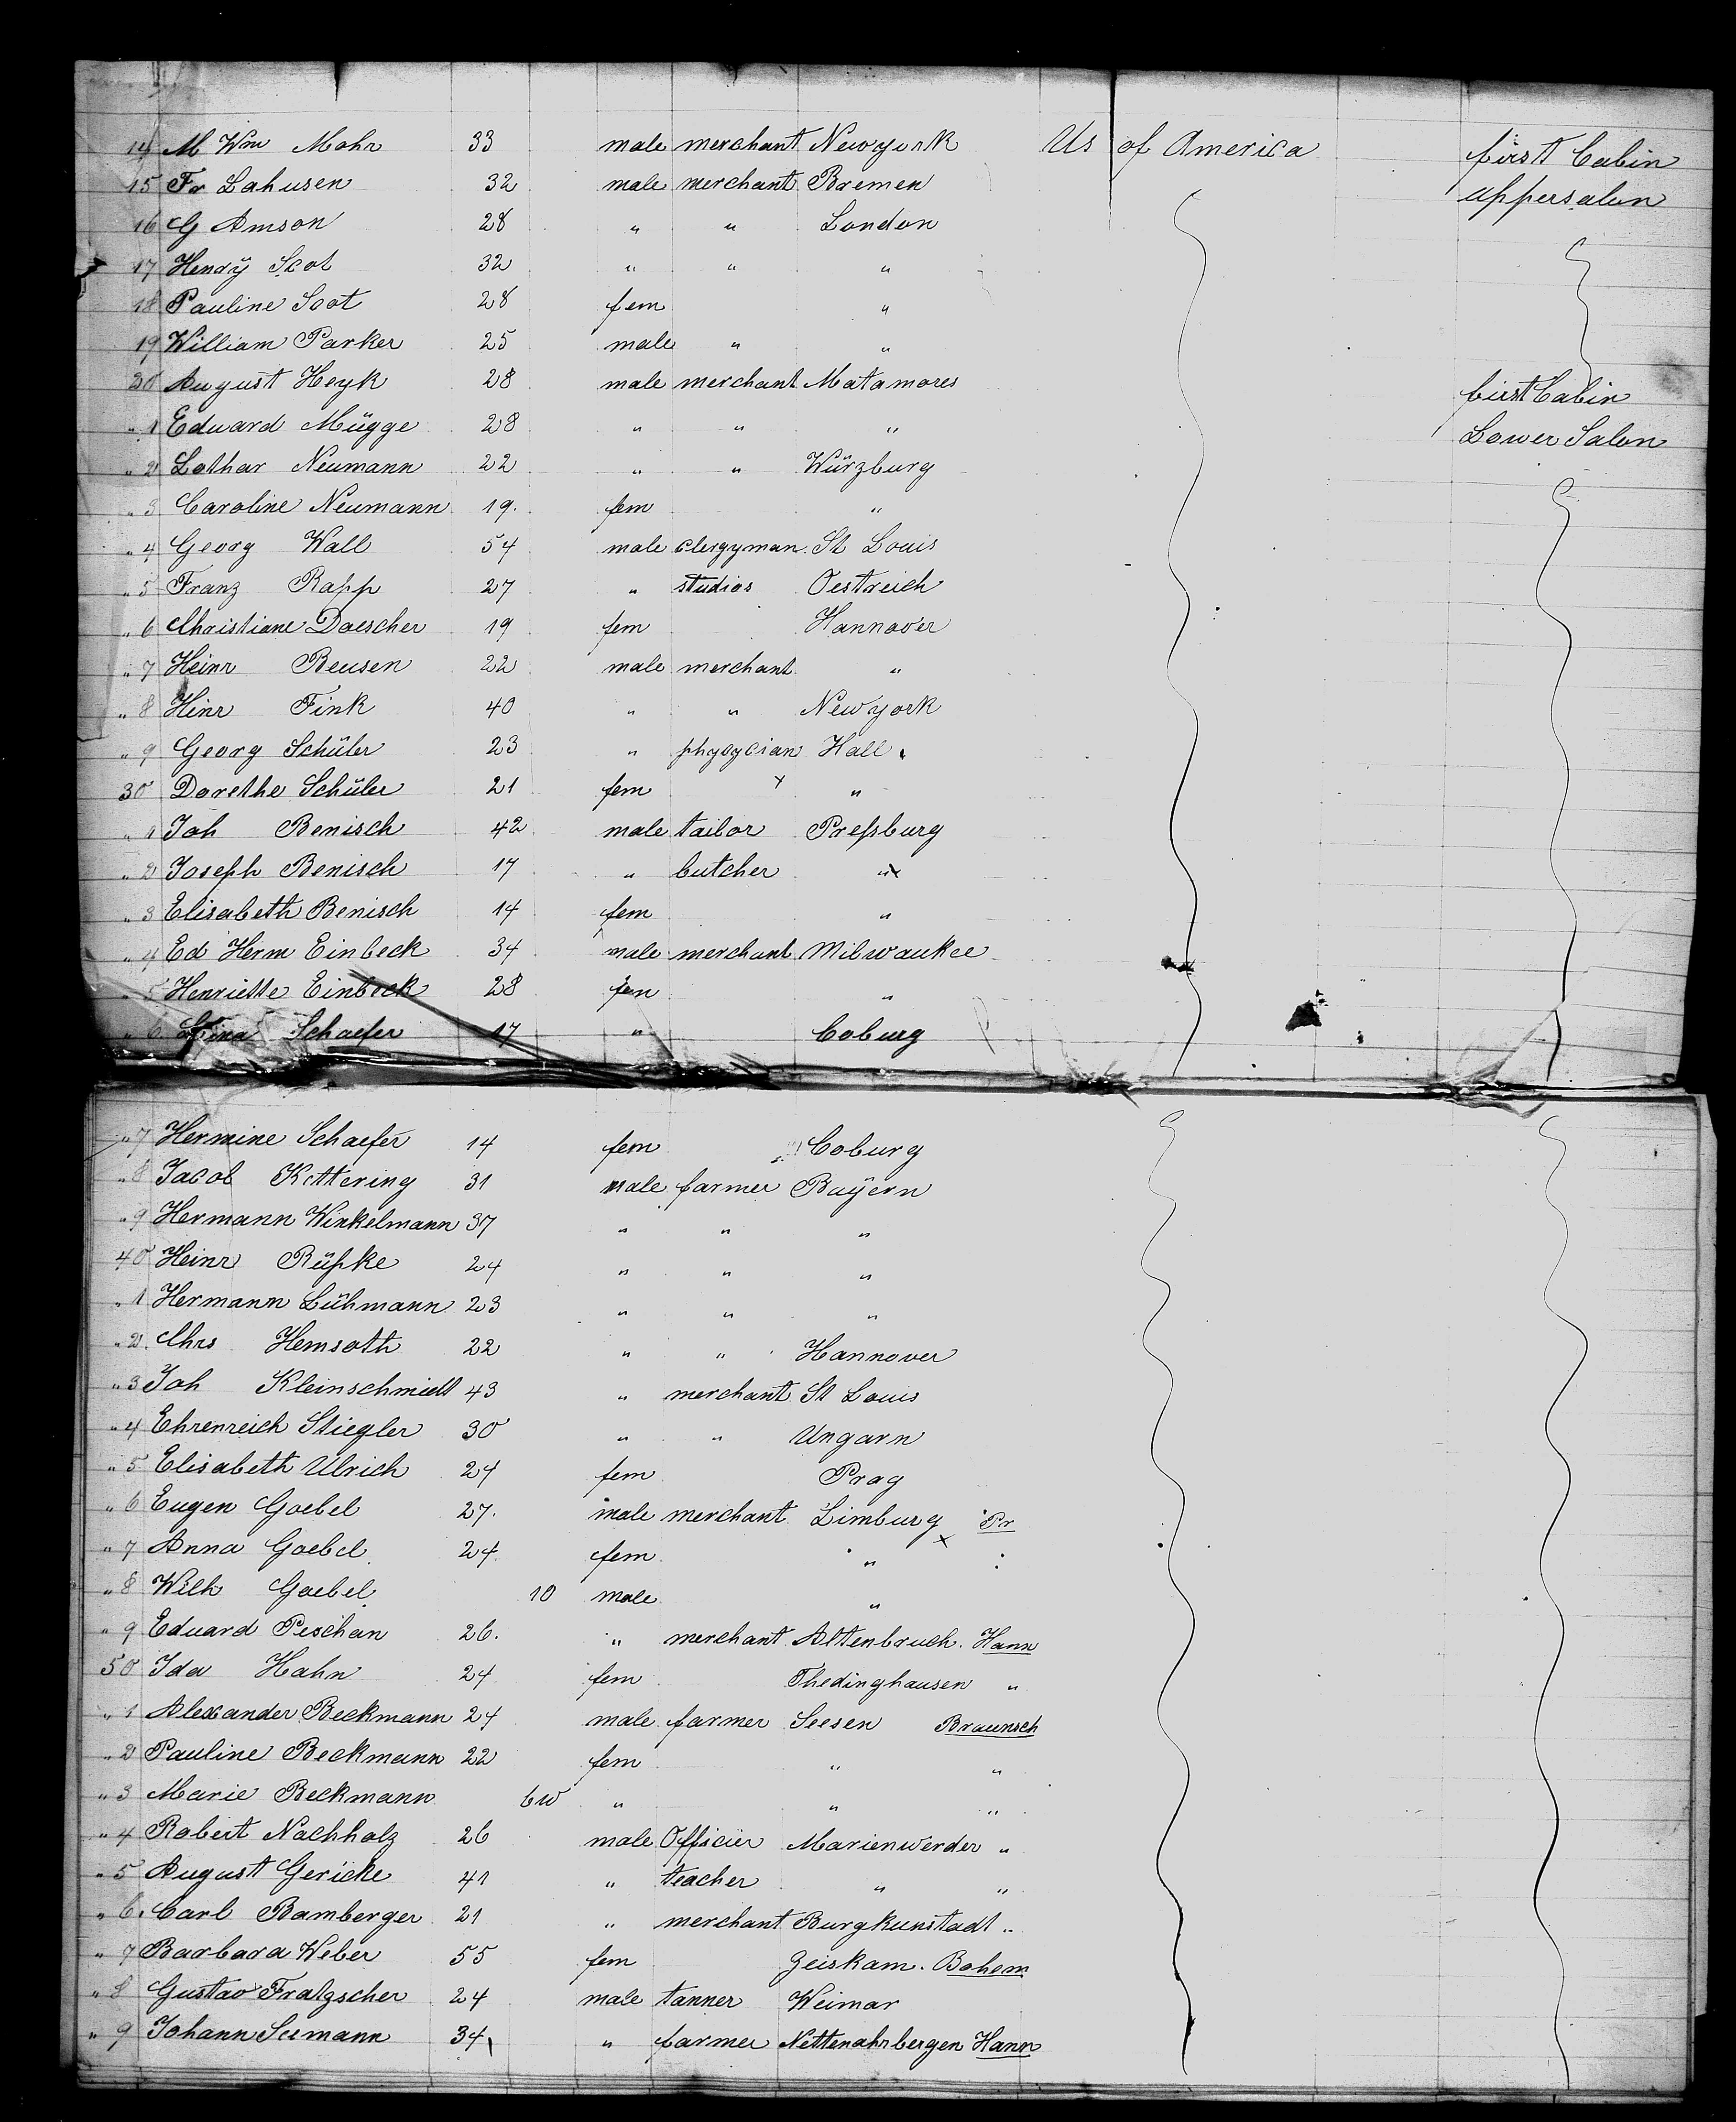 14 M Wm Mohr 33 male merchant Newyork Us of America first Cabin
15 Fr Lahusen 32 male merchant Bremen uppersalon
16 G Amson 28 " " London
17 Hendÿ Scot 32 " " "
18 Pauline Scot 28 fem "
19 William Parker 25 male " "
20 August Heyk 28 male merchant Matamores first Cabin
" 1 Eduard Mügge 28 " " " Lower Salon
" 2 Lothar Neumann 22 " " Würzburg
" 3 Caroline Neumann 19. fem "
" 4 Georg Wall 54 male clergyman St Louis
" 5 Franz Rapp 27 " studios Oestreich
" 6 Christiane Daescher 19 fem Hannover
" 7 Heinr Beusen 22 male merchant "
" 8 Hinr Fink 40 " " Newyork
" 9 Georg Schüler 23 " phyoycian Hall
30 Dorethe Schüler 21 fem x "
" 1 Joh Benisch 42 male tailor Preßburg
" 2 Joseph Benisch 17 " butcher "
" 3 Elisabeth Benisch 14 fem "
" 4 Ed Herm Einbeck 34 male merchant Milwaukee
" 5 Henriette Einbeck 28 fem "
" 6 Schaefer 17 " Coburg
" 7 Hermine Schaefer 14 fem Coburg
" 8 Jacob Kettering 31 male farmer Bayern
" 9 Hermann Winkelmann 37 " " "
40 Heinr Rüpke 24 " " "
" 1 Hermann Lühmann 23 " " "
" 2. Chrs Hemsoth 22 " " Hannover
" 3 Joh Kleinschmidt 43 " merchant St Louis
" 4 Ehrenreich Stiegler 30 " " Ungarn
" 5 Elisabeth Ulrich 24 fem Prag
" 6 Eugen Goebel 27. male merchant Limburg Pr
" 7 Anna Goebel 24 fem " :
" 8 Wilh Goebel 10 male "
" 9 Eduard Peschan 26. " merchant Altenbruch. Hann
50 Ida Hahn 24 fem Thedinghausen "
" 1 Alexander Beckmann 24 male farmer Seesen Braunsch
" 2 Pauline Beckmann 22 fem " "
" 3 Marie Beckmann 6w " " "
" 4 Robert Nachholz 26 male Officier Marienwerder "
" 5 August Gericke 41 " teacher " "
" 6. Carl Bamberger 21 " merchant Burgkunstadt "
" 7 Barbara Weber 55 fem Zeiskam. Bohem
" 8 Gustav Fratzscher 24 male tanner Weimar
" 9 Johann Seemann 34 " farmer Nettenahrbergen Hann